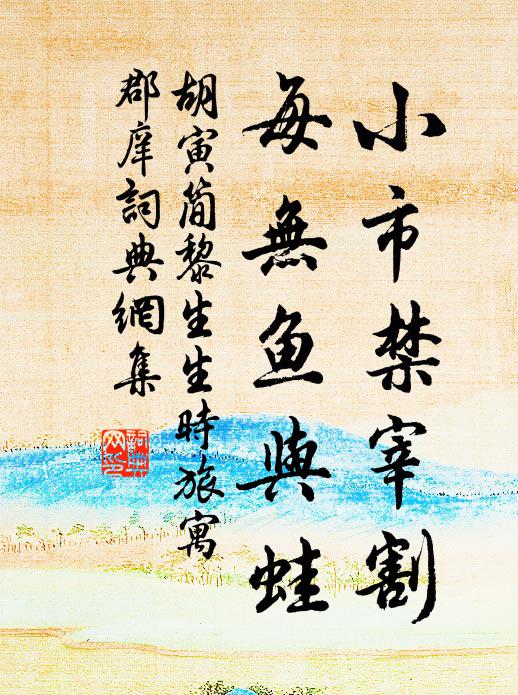 小市禁宰割
每無魚與蛙
胡寅簡黎生生時旅寓
郡庠詞典網集